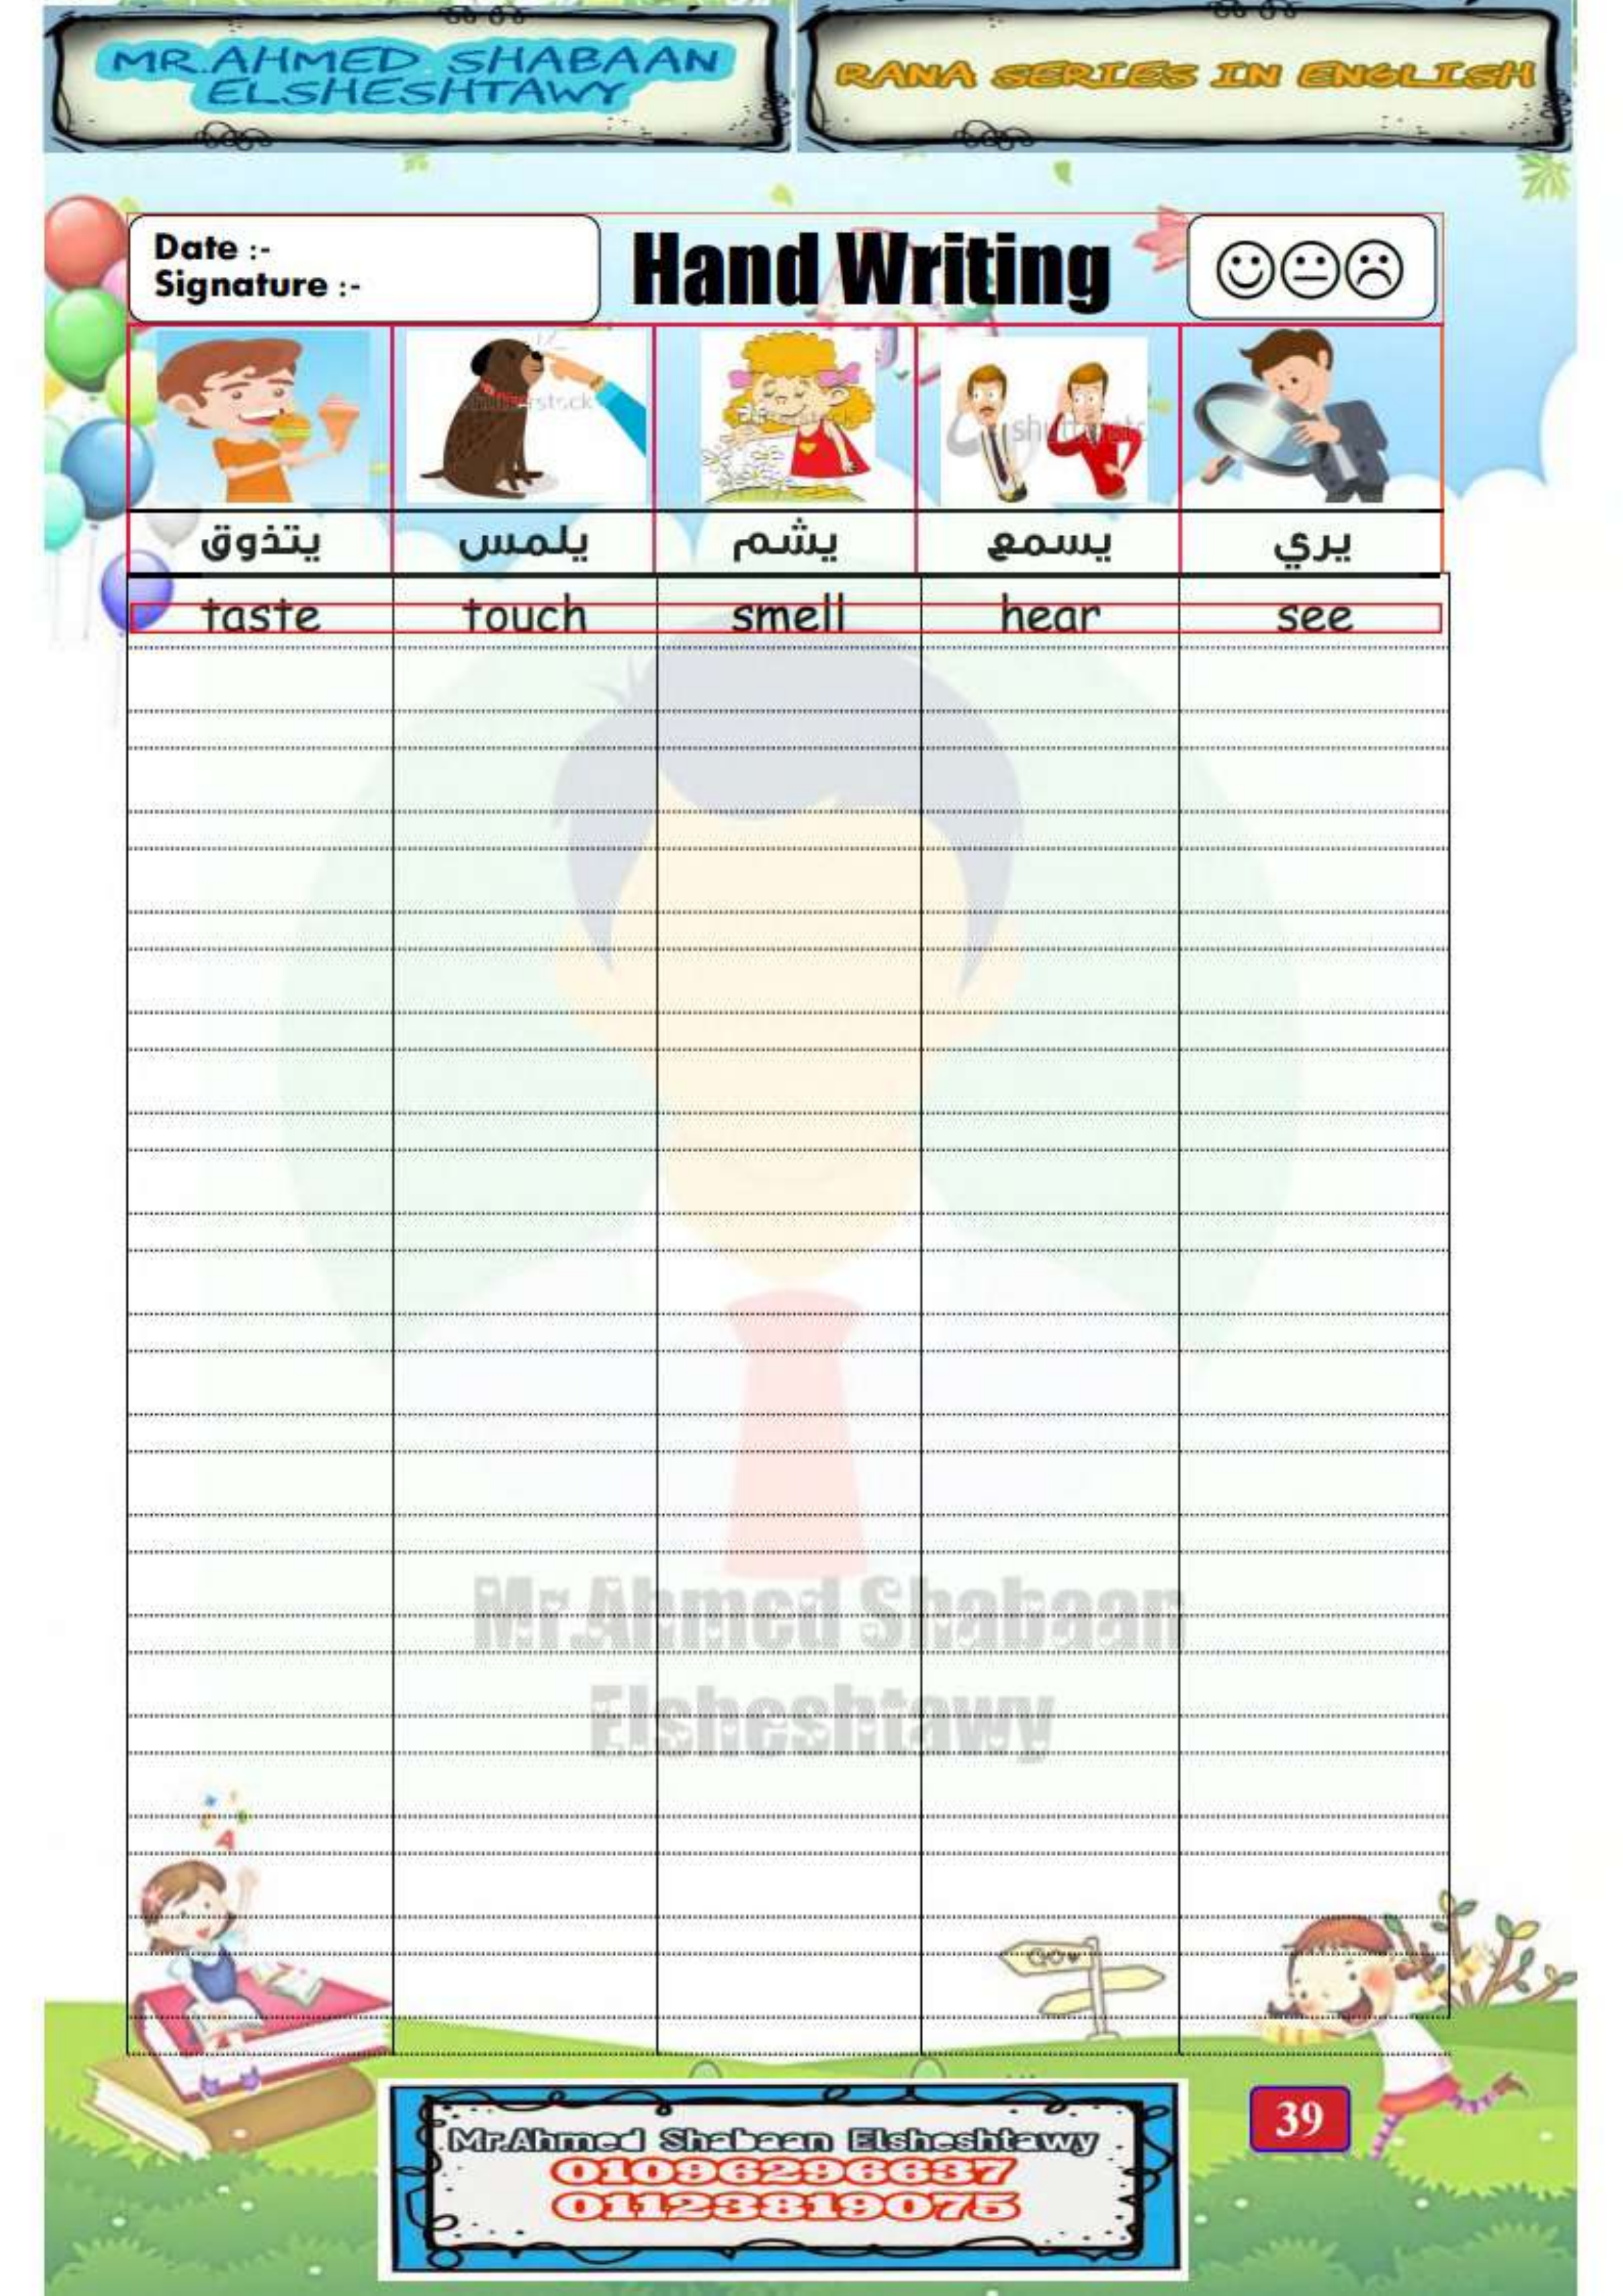 MR.AHMED SHABAAN
ELSHESHTAWY
RANA SERIES IN ENGLISH
Date :-
Signature :-
Hand Writing
يتذوق يلمس يشم يسمع يري
taste touch smell hear see
Mr.Ahmed Shabaan
Elsheshtawy
A
GOW
39
Mr.Ahmed Shabaan Elsheshtawy
01096296637
01123819075